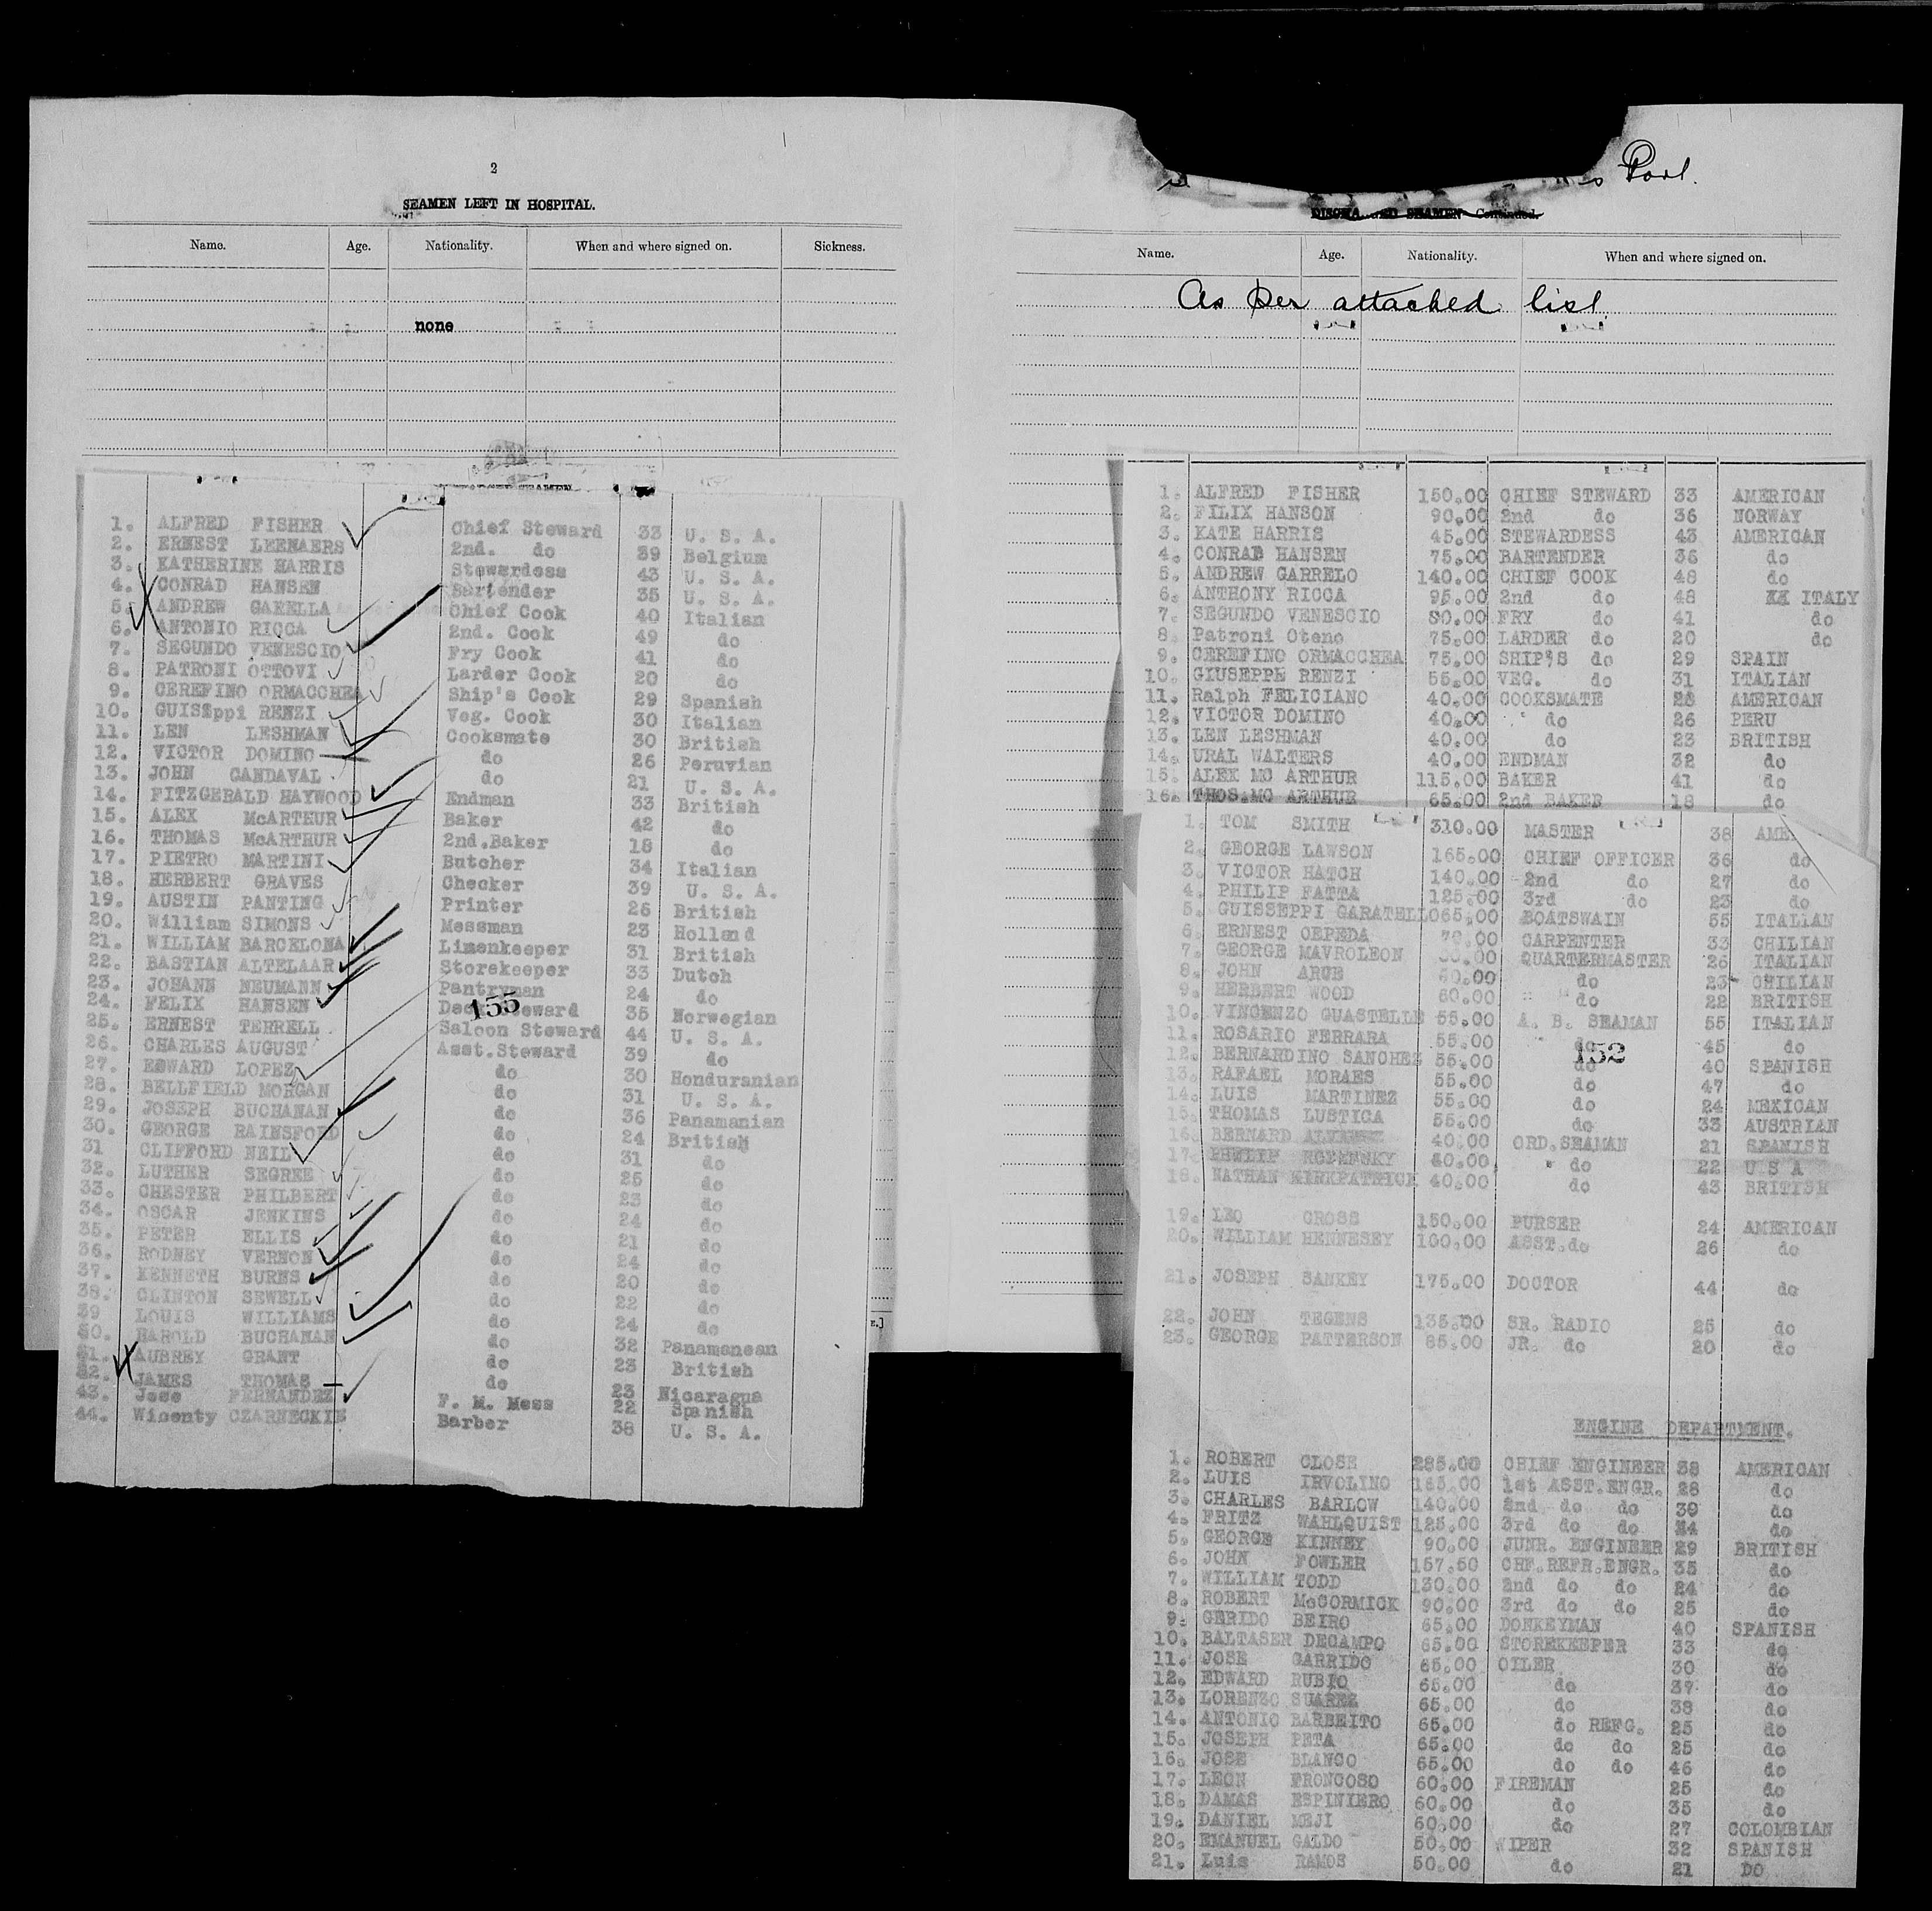 2
SEAMEN LEFT IN HOSPITAL.
Name. Age. Nationality. When and where signed on. Sickness.
none
1. ALFRED FISHER Chief Steward 33 U. S. A.
2. ERNEST LEENAERS 2nd. do 39 Belgium
3. KATHERINE HARRIS Stewardess 43 U. S. A.
4. CONRAD HANSEN Bartender 35 U. S. A.
5. ANDREW GARELLA Chief Cook 40 Italian
6. ANTONIO RICCA 2nd. Cook 49 do
7. SEGUNDO VENESCIO Fry Cook 41 do
8. PATRONI OTTOVI Larder Cook 20 do
9. CEREFINO ORMACCHEA Ship's Cook 29 Spanish
10. GUISEppi RENZI Veg. Cook 30 Italian
11. LEN LESHMAN Cooksmate 30 British
12. VICTOR DOMINO do 26 Peruvian
13. JOHN CANDAVAL do 21 U. S. A.
14. FITZGERALD HAYWOOD Endman 33 British
15. ALEX McARTHUR Baker 42 do
16. THOMAS McARTHUR 2nd.Baker 18 do
17. PIETRO MARTINI Butcher 34 Italian
18. HERBERT GRAVES Checker 39 U. S. A.
19. AUSTIN PANTING Printer 26 British
20. William SIMONS Messman 23 Holland
21. WILLIAM BARCELONA Linenkeeper 31 British
22. BASTIAN ALTELAAR Storekeeper 33 Dutch
23. JOHANN NEUMANN Pantryman 24 do
24. FELIX HANSEN Deck Steward 35 Norwegian
155
25. ERNEST TERRELL Saloon Steward 44 U. S. A.
26. CHARLES AUGUST Asst.Steward 39 do
27. EDWARD LOPEZ do 30 Honduranian
28. BELLFIELD MORGAN do 31 U. S. A.
29. JOSEPH BUCHANAN do 36 Panamanian
30. GEORGE RAINSFORD do 24 British
31 CLIFFORD NEIL do 31 do
32. LUTHER SEGREE do 25 do
33. CHESTER PHILBERT do 23 do
34. OSCAR JENKINS do 24 do
35. PETER ELLIS do 21 do
36. RODNEY VERNON do 24 do
37. KENNETH BURNS do 20 do
38. CLINTON SEWELL do 22 do
39 LOUIS WILLIAMS do 24 do
HAROLD BUCHANAN do 32 Panamanean
AUBREY GRANT do 23 British
JAMES THOMAS do 23 Nicaragua
43. Jose FERNANDEZ F. M. Mess 22 Spanish
44. Wincenty CZARNECKIE Barber 38 U. S. A.
Port.
SEAMEN Continued.
Name. Age. Nationality. When and where signed on.
As per attached list.
1. ALFRED FISHER 150.00 CHIEF STEWARD 33 AMERICAN
2. FILIX HANSON 90.00 2nd do 36 NORWAY
3. KATE HARRIS 45.00 STEWARDESS 43 AMERICAN
4. CONRAD HANSEN 75.00 BARTENDER 36 do
5. ANDREW GARRELO 140.00 CHIEF COOK 48 do
6. ANTHONY RICCA 95.00 2nd do 48 ITALY
7. SEGUNDO VENESCIO 80.00 FRY do 41 do
8. Patroni Oteno 75.00 LARDER do 20 do
9. CEREFINO ORMACCHEA 75.00 SHIP'S do 29 SPAIN
10. GIUSEPPE RENZI 55.00 VEG. do 31 ITALIAN
11. Ralph FELICIANO 40.00 COOKSMATE 28 AMERICAN
12. VICTOR DOMINO 40.00 do 26 PERU
13. LEN LESHMAN 40.00 do 23 BRITISH
14. URAL WALTERS 40.00 ENDMAN 32 do
15. ALEX MC ARTHUR 115.00 BAKER 41 do
16. THOS.MC ARTHUR 65.00 2nd BAKER 18 do
1. TOM SMITH 310.00 MASTER 38 AME
2. GEORGE LAWSON 165.00 CHIEF OFFICER 36 do
3. VICTOR HATCH 140.00 2nd do 27 do
4. PHILIP FATTA 125.00 3rd do 23 do
5. GUISSEPPI GARATELLO 65.00 BOATSWAIN 55 ITALIAN
6. ERNEST CEPEDA 70.00 CARPENTER 33 CHILIAN
7. GEORGE MAVROLEON QUARTERMASTER 26 ITALIAN
8. JOHN ARCE do 23 CHILIAN
9. HERBERT WOOD 60.00 do 22 BRITISH
10. VINCENZO GUASTELLE 55.00 A. B. SEAMAN 55 ITALIAN
11. ROSARIO FERRARA 55.00 do 45 do
152
12. BERNARDINO SANCHES 55.00 do 40 SPANISH
13. RAFAEL MORAES 55.00 do 47 do
14. LUIS MARTINEZ 55.00 do 24 MEXICAN
15. THOMAS LUSTICA 55.00 do 33 AUSTRIAN
16. BERNARD 40.00 ORD.SEAMAN 21 SPANISH
17. PHILIP 40.00 do 22 U S A
18. NATHAN KIRKPATRICK 40.00 do 43 BRITISH
19. LEO GROSS 150.00 PURSER 24 AMERICAN
20. WILLIAM HENNESEY 100.00 ASST.do 26 do
21. JOSEPH SANKEY 175.00 DOCTOR 44 do
22. JOHN TEGENS 135.00 SR. RADIO 25 do
23. GEORGE PATTERSON 85.00 JR. do 20 do
ENGINE DEPARTMENT.
1. ROBERT CLOSE 285.00 CHIEF ENGINEER 38 AMERICAN
2. LUIS IRVOLINO 185.00 1st ASST.ENGR. 28 do
3. CHARLES BARLOW 140.00 2nd do do 39 do
4. FRITZ WAHLQUIST 125.00 3rd do do 24 do
5. GEORGE KINNEY 90.00 JUNR. ENGINEER 29 BRITISH
6. JOHN FOWLER 157.50 CHF.REFR.ENGR. 35 do
7. WILLIAM TODD 130.00 2nd do do 24 do
8. ROBERT McCORMICK 90.00 3rd do do 25 do
9. GERIDO BEIRO 65.00 DONKEYMAN 40 SPANISH
10. BALTASER DECAMPO 65.00 STOREKEEPER 33 do
11. JOSE GARRIDO 65.00 OILER 30 do
12. EDWARD RUBIO 65.00 do 37 do
13. LORENZO SUAREZ 65.00 do 38 do
14. ANTONIO BARBEITO 65.00 do REFG. 25 do
15. JOSEPH PETA 65.00 do do 25 do
16. JOSE BLANCO 65.00 do do 46 do
17. LEON FRONCOSO 60.00 FIREMAN 25 do
18. DAMAS ESPINIERO 60.00 do 35 do
19. DANIEL MEJI 60.00 do 27 COLOMBIAN
20. EMANUEL GALDO 50.00 WIPER 32 SPANISH
21. Luis RAMOS 50.00 do 21 DO